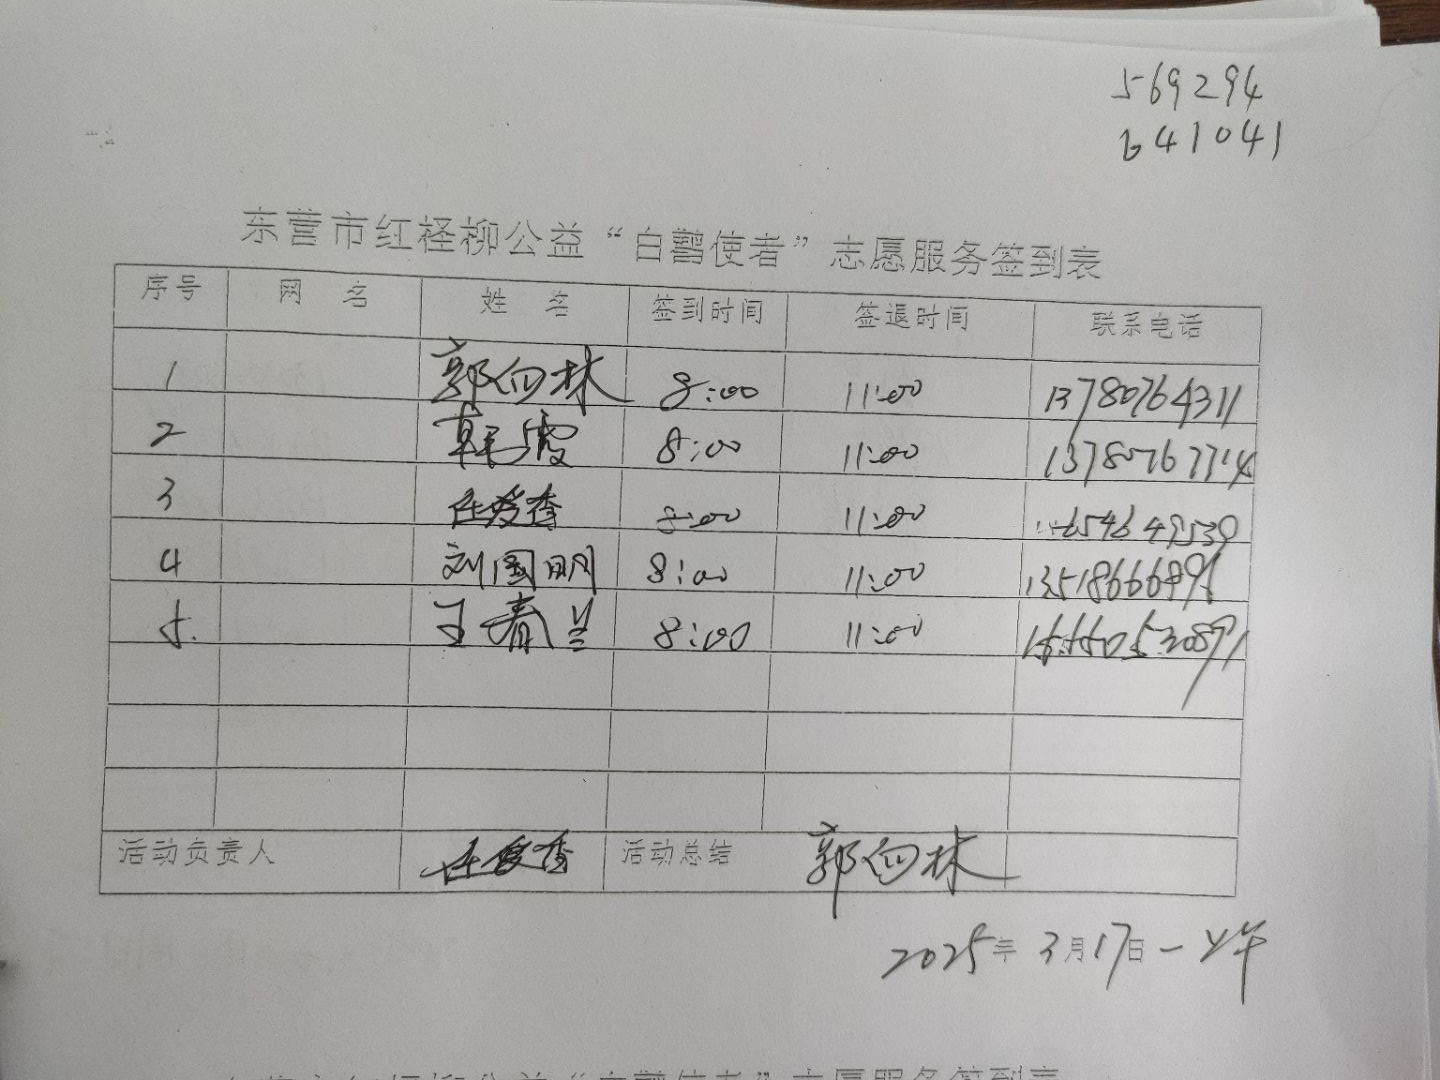 569294
641041
东营市红柽柳公益“白鹳使者”志愿服务签到表
序号 网 名 姓 名 签到时间 签退时间 联系电话
1 郭向林 8:00 11:00 13780764311
2 8:00 11:00
3 任爱香 8:00 11:00
4 刘国明 8:00 11:00
5. 王春兰 8:00 11:00
活动负责人 任爱香 活动总结 郭向林
2025年3月17日一上午